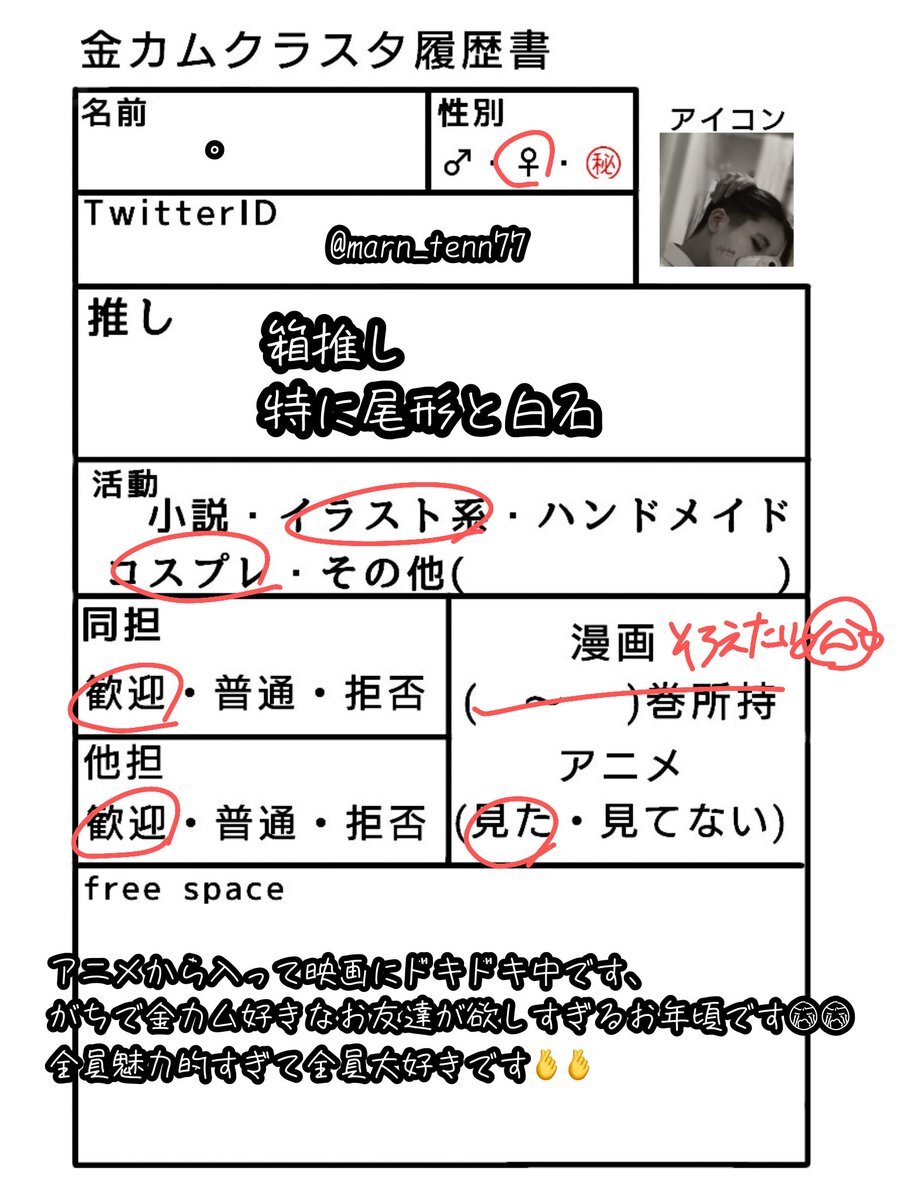 金カムクラスタ履歴書
名前
性別
アイコン
♂・♀・㊙
TwitterID
@marn_tenn77
推し
箱推し
特に尾形と白石
活動
小説・イラスト系・ハンドメイド
コスプレ・その他( )
同担
歓迎・普通・拒否
漫画 そろえたい
( ~ )巻所持
他担
歓迎・普通・拒否
アニメ
(見た・見てない)
free space
アニメから入って映画にドキドキ中です、
がちで金カム好きなお友達が欲しすぎるお年頃です😭😭
全員魅力的すぎて全員大好きです🫰🫰